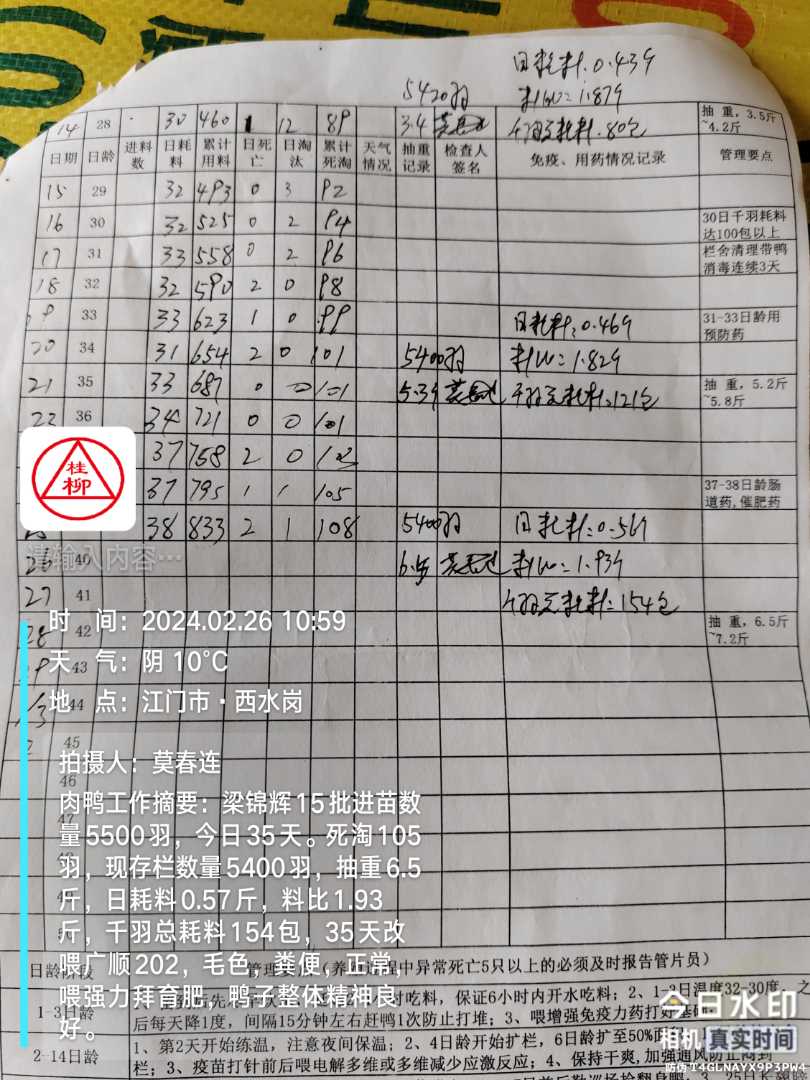 日耗料:0.43斤
5420羽 料比=1.87斤
14 28 30 460 1 12 89 3.4 千羽总耗料.80包 抽重,3.5斤~4.2斤
日期 日龄 进料数 日耗料 累计用料 日死亡 日淘汰 累计死淘 天气情况 抽重记录 检查人签名 免疫、用药情况记录 管理要点
15 29 32 493 0 3 92
16 30 32 525 0 2 94 30日千羽耗料达100包以上
17 31 33 558 0 2 96 栏舍清理带鸭消毒连续3天
18 32 32 590 2 0 98
19 33 33 623 1 0 99 日耗料:0.46斤 31-33日龄用预防药
20 34 31 654 2 0 101 5400羽 料比=1.82斤
21 35 33 687 0 0 101 5.3斤 千羽总耗料:121包 抽重,5.2斤~5.8斤
23 36 34 721 0 0 101
37 758 2 0 103
37 795 1 1 105 37-38日龄肠道药,催肥药
38 833 2 1 108 5400羽 日耗料:0.56斤
26 40 6.5 料比=1.93斤
27 41 千羽总耗料:154包
28 42 抽重,6.5斤~7.2斤
43
44
45
46
桂柳
请输入内容…
时 间:2024.02.26 10:59
天 气:阴 10°C
地 点:江门市·西水岗
拍摄人:莫春连
肉鸭工作摘要:梁锦辉15批进苗数
量5500羽,今日35天。死淘105
羽,现存栏数量5400羽,抽重6.5
斤,日耗料0.57斤,料比1.93
斤,千羽总耗料154包,35天改
喂广顺202,毛色,粪便,正常,
喂强力拜育肥,鸭子整体精神良
好。
日龄阶段 中异常死亡5只以上的必须及时报告管片员)
1-3日龄 吃料,保证6小时内开水吃料;2、1-3日温度32-30度,之
后每天降1度,间隔15分钟左右赶鸭1次防止打堆;3、喂增强免疫力药打好基础
2-14日龄 1、第2天开始练温,注意夜间保温;2、4日龄开始扩栏,6日龄扩至50%
栏;3、疫苗打针前后喂电解多维或多维减少应激反应;4、保持干爽,加强通风防止闷到
今日水印
相机 真实时间
防伪 T4GLNAYX9P3PW4